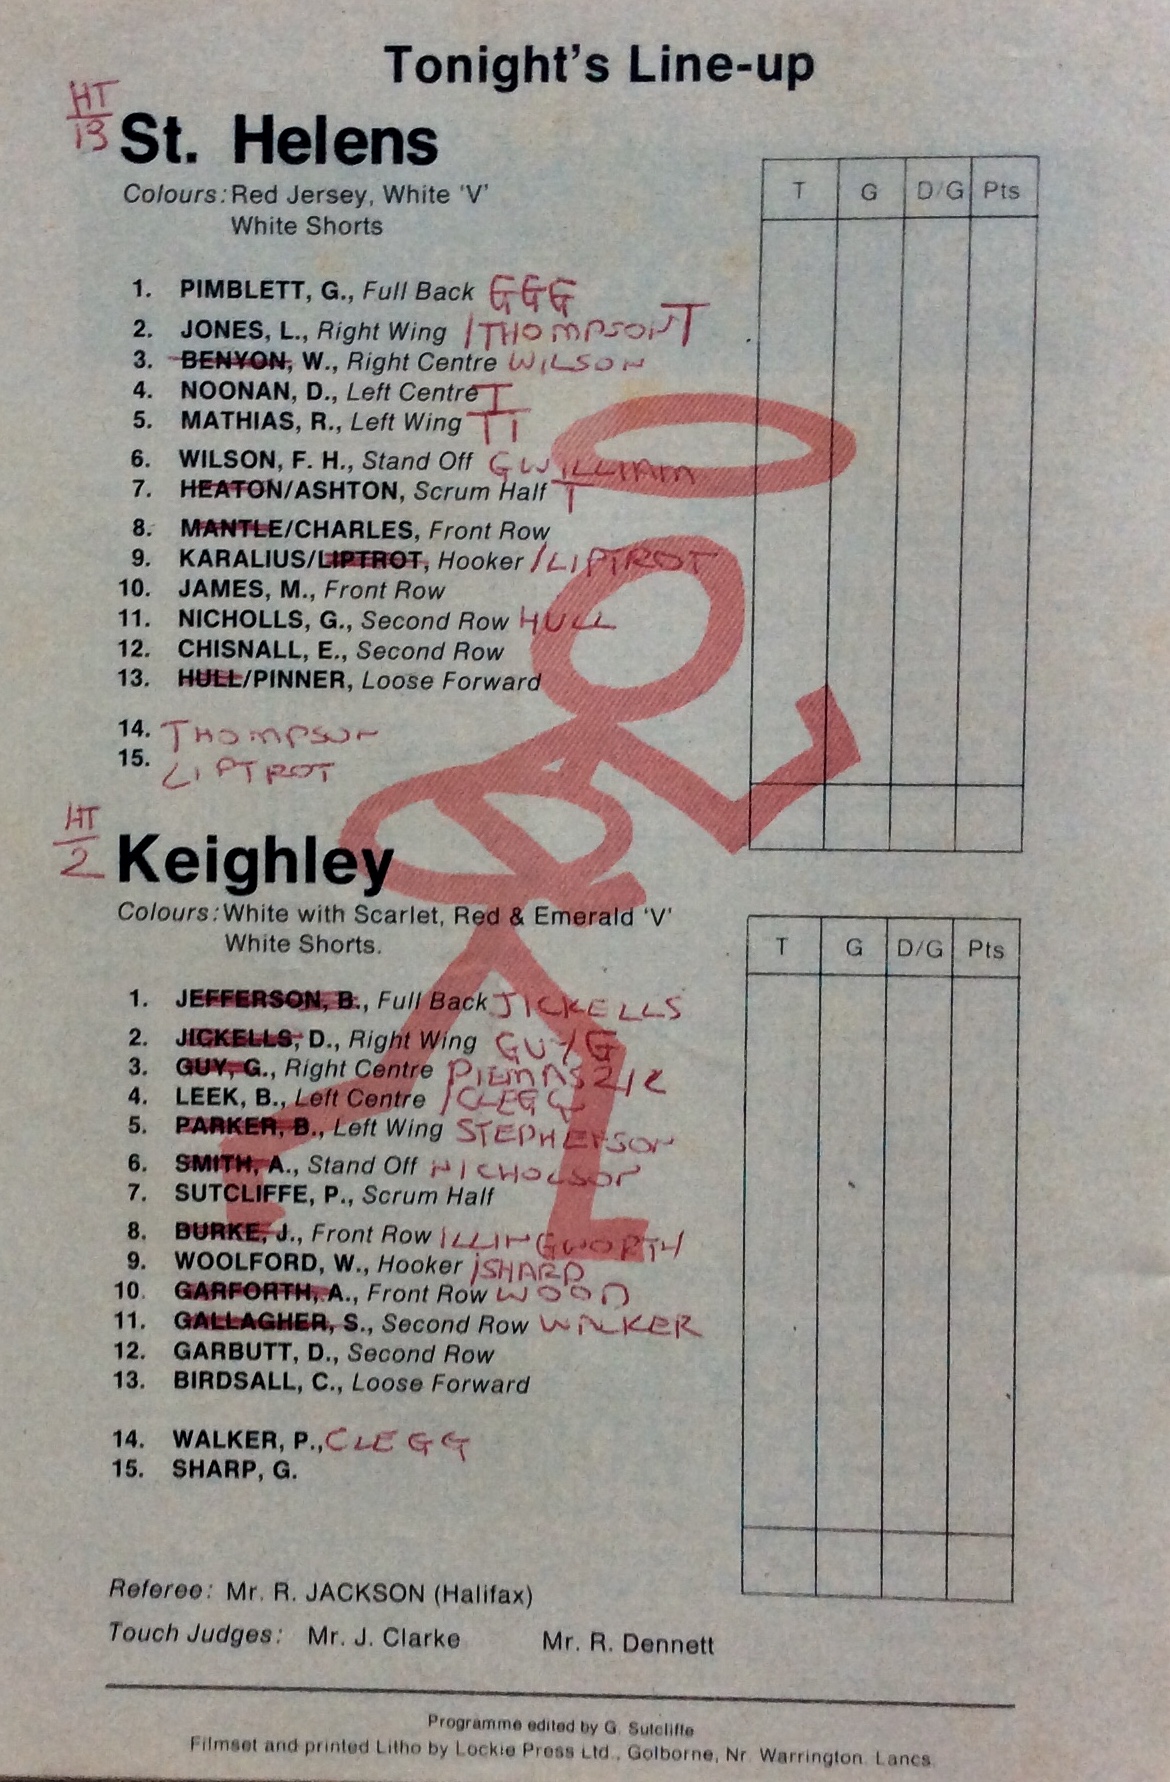 Tonight's Line-up
HT
13
St. Helens
Colours: Red Jersey, White 'V'
White Shorts
T G D/G Pts
1. PIMBLETT, G., Full Back GGG
2. JONES, L., Right Wing /THOMPSON T
3. BENYON, W., Right Centre WILSON
4. NOONAN, D., Left Centre T
5. MATHIAS, R., Left Wing TT
6. WILSON, F. H., Stand Off GWILLIAM
7. HEATON/ASHTON, Scrum Half T
8. MANTLE/CHARLES, Front Row
9. KARALIUS/LIPTROT, Hooker /LIPTROT
10. JAMES, M., Front Row
11. NICHOLLS, G., Second Row HULL
12. CHISNALL, E., Second Row
13. HULL/PINNER, Loose Forward
14. THOMPSON
15. LIPTROT
HT
2
Keighley
Colours: White with Scarlet, Red & Emerald 'V'
White Shorts.
T G D/G Pts
1. JEFFERSON, B., Full Back JICKELLS
2. JICKELLS, D., Right Wing GUY G
3. GUY, G., Right Centre
4. LEEK, B., Left Centre /CLEGG
5. PARKER, B., Left Wing STEPHENSON
6. SMITH, A., Stand Off NICHOLSON
7. SUTCLIFFE, P., Scrum Half
8. BURKE, J., Front Row ILLINGWORTH
9. WOOLFORD, W., Hooker /SHARP
10. GARFORTH, A., Front Row WOOD
11. GALLAGHER, S., Second Row WALKER
12. GARBUTT, D., Second Row
13. BIRDSALL, C., Loose Forward
14. WALKER, P., CLEGG
15. SHARP, G.
Referee: Mr. R. JACKSON (Halifax)
Touch Judges: Mr. J. Clarke Mr. R. Dennett
Programme edited by G. Sutcliffe
Filmset and printed Litho by Lockie Press Ltd., Golborne, Nr. Warrington. Lancs.